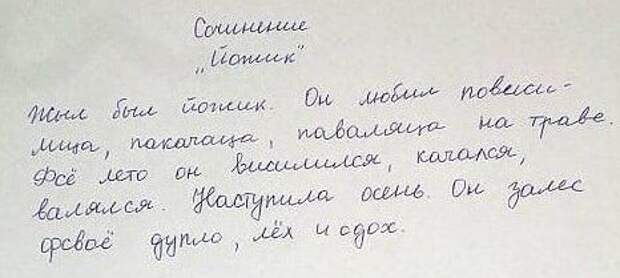 Сочинение
„Йожик"
Жыл был йожик. Он любил повисили-
лица, пакачаца, паваляца на траве.
Фсё лето он висилился, качался,
валялся. Наступила осень. Он залес
фсваё дупло, лёх и сдох.